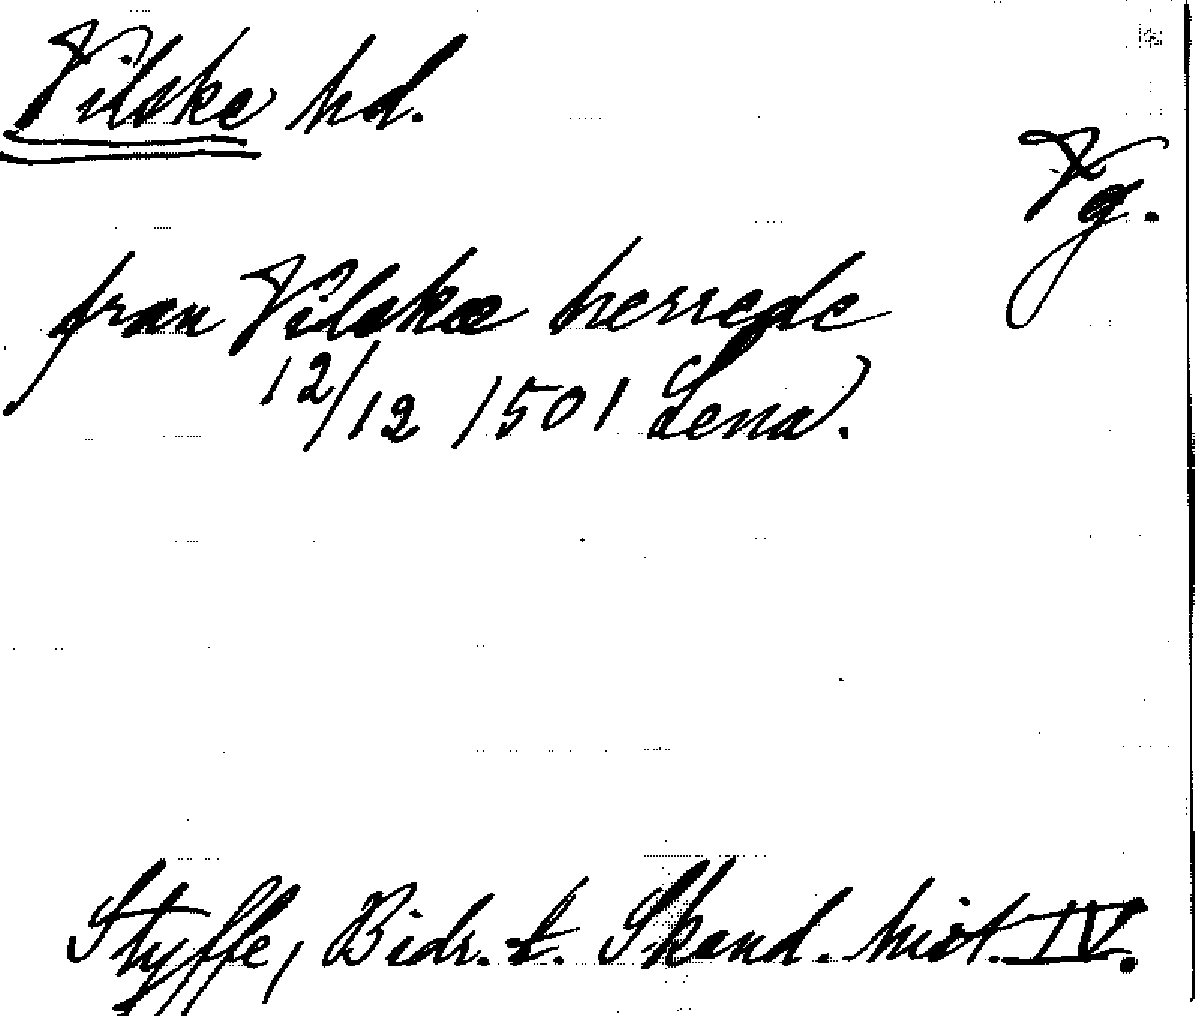 Vilske hd.
Vg.
fran Vilskæ herrede
12/12 1501 Lena.
Styffe, Bidr. t. Skand. hist. IV.